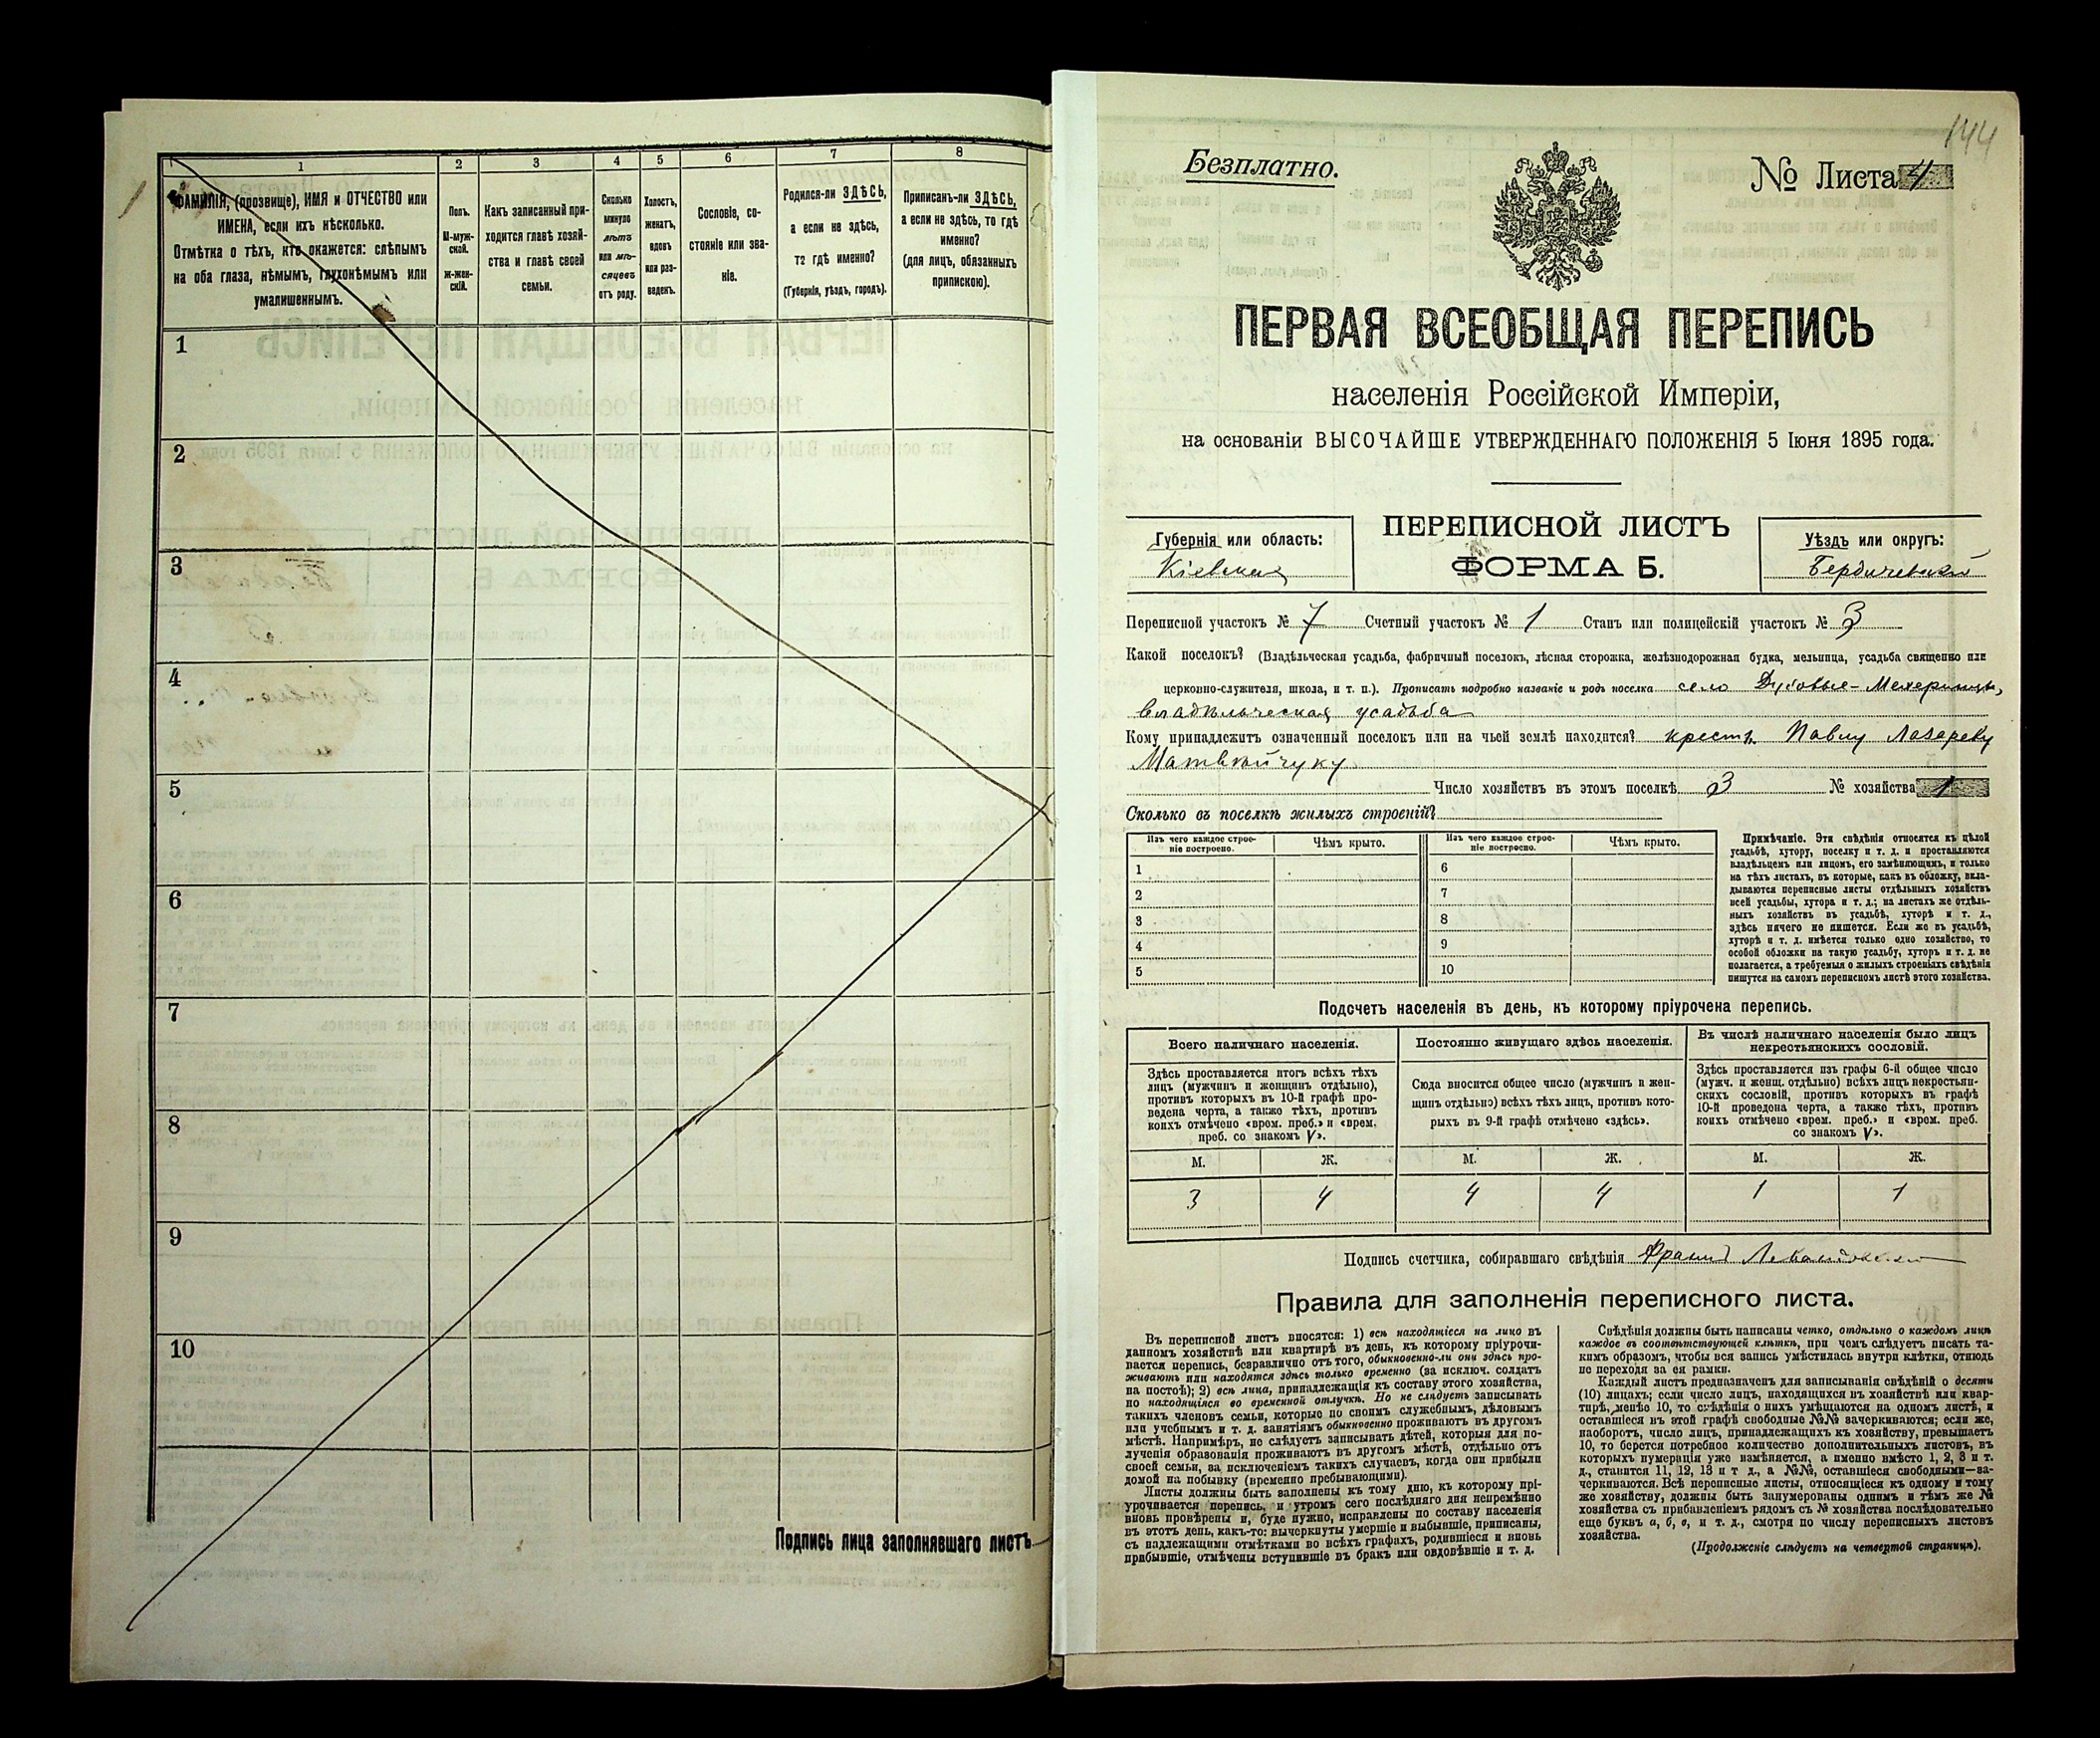 1
1
2
3
4
5
6
7
8
ФАМИЛІЯ, (прозвище), ИМЯ и ОТЧЕСТВО или
ИМЕНА, если ихъ нѣсколько.
Отмѣтка о тѣхъ, кто окажется: слѣпымъ
на оба глаза, нѣмымъ, глухонѣмымъ или
умалишеннымъ.
Полъ.
М-муж-
ской.
ж-жен-
скій.
Какъ записанный при-
ходится главѣ хозяй-
ства и главѣ своей
семьи.
Сколько
минуло
лѣтъ
или мѣ-
сяцевъ
отъ роду.
Холостъ,
женатъ,
вдовъ
или раз-
веденъ.
Сословіе, со-
стояніе или зва-
ніе.
Родился-ли ЗДѢСЬ,
а если не здѣсь,
то гдѣ именно?
(Губернія, уѣздъ, городъ).
Приписанъ-ли ЗДѢСЬ,
а если не здѣсь, то гдѣ
именно?
(для лицъ, обязанныхъ
припискою).
1
2
3
4
5
6
7
8
9
10
Подпись лица заполнявшаго листъ
144
Безплатно.
№ Листа 4
ПЕРВАЯ ВСЕОБЩАЯ ПЕРЕПИСЬ
населенія Россійской Имперіи,
на основаніи ВЫСОЧАЙШЕ УТВЕРЖДЕННАГО ПОЛОЖЕНІЯ 5 Іюня 1895 года.
ПЕРЕПИСНОЙ ЛИСТЪ
ФОРМА Б.
Губернія или область:
Кіевская
Уѣздъ или округъ:
Бердичевскій
Переписной участокъ № 7 Счетный участокъ № 1 Станъ или полицейскій участокъ № 3
Какой поселокъ? (Владѣльческая усадьба, фабричный поселокъ, лѣсная сторожка, желѣзнодорожная будка, мельница, усадьба священно или
церковно-служителя, школа, и т. п.). Прописать подробно названіе и родъ поселка село
владѣльческая усадьба
Кому принадлежитъ означенный поселокъ или на чьей землѣ находится? крест. Павлу Лазареву
Матвійчуку
Число хозяйствъ въ этомъ поселкѣ 3 № хозяйства 1
Сколько въ поселкѣ жилыхъ строеній?
Изъ чего каждое строе-
ніе построено.
Чѣмъ крыто.
Изъ чего каждое строе-
ніе построено.
Чѣмъ крыто.
1 6
2 7
3 8
4 9
5 10
Примѣчаніе. Эти свѣдѣнія относятся къ цѣлой
усадьбѣ, хутору, поселку и т. д. и проставляются
владѣльцемъ или лицомъ, его замѣняющимъ, и только
на тѣхъ листахъ, въ которые, какъ въ обложку, вкла-
дываются переписные листы отдѣльныхъ хозяйствъ
всей усадьбы, хутора и т. д.; на листахъ же отдѣль-
ныхъ хозяйствъ въ усадьбѣ, хуторѣ и т. д.,
здѣсь ничего не пишется. Если же въ усадьбѣ,
хуторѣ и т. д. имѣется только одно хозяйство, то
особой обложки на такую усадьбу, хуторъ и т. д. не
полагается, а требуемыя о жилыхъ строеніяхъ свѣдѣнія
пишутся на самомъ переписномъ листѣ этого хозяйства.
Подсчетъ населенія въ день, къ которому пріурочена перепись.
Всего наличнаго населенія.
Здѣсь проставляется итогъ всѣхъ тѣхъ
лицъ (мужчинъ и женщинъ отдѣльно),
противъ которыхъ въ 10-й графѣ про-
ведена черта, а также тѣхъ, противъ
коихъ отмѣчено «врем. преб.» и «врем.
преб. со знакомъ V».
Постоянно живущаго здѣсь населенія.
Сюда вносится общее число (мужчинъ и жен-
щинъ отдѣльно) всѣхъ тѣхъ лицъ, противъ кото-
рыхъ въ 9-й графѣ отмѣчено «здѣсь».
Въ числѣ наличнаго населенія было лицъ
некрестьянскихъ сословій.
Здѣсь проставляется изъ графы 6-й общее число
(мужч. и женщ. отдѣльно) всѣхъ лицъ некрестьян-
скихъ сословій, противъ которыхъ въ графѣ
10-й проведена черта, а также тѣхъ, противъ
коихъ отмѣчено «врем. преб.» и «врем. преб.
со знакомъ V».
М. Ж. М. Ж. М. Ж.
3 4 4 4 1 1
Подпись счетчика, собиравшаго свѣдѣнія Францъ
Правила для заполненія переписного листа.
Въ переписной листъ вносятся: 1) всѣ находящіеся на лицо въ
данномъ хозяйствѣ или квартирѣ въ день, къ которому пріурочи-
вается перепись, безразлично отъ того, обыкновенно-ли они здѣсь про-
живаютъ или находятся здѣсь только временно (за исключ. солдатъ
на постоѣ); 2) всѣ лица, принадлежащія къ составу этого хозяйства,
но находящіяся во временной отлучкѣ. Но не слѣдуетъ записывать
такихъ членовъ семьи, которые по своимъ служебнымъ, дѣловымъ
или учебнымъ и т. д. занятіямъ обыкновенно проживаютъ въ другомъ
мѣстѣ. Напримѣръ, не слѣдуетъ записывать дѣтей, которыя для по-
лученія образованія проживаютъ въ другомъ мѣстѣ, отдѣльно отъ
своей семьи, за исключеніемъ такихъ случаевъ, когда они прибыли
домой на побывку (временно пребывающими).
Листы должны быть заполнены къ тому дню, къ которому прі-
урочивается перепись, и утромъ сего послѣдняго дня непремѣнно
вновь провѣрены и, буде нужно, исправлены по составу населенія
въ этотъ день, какъ-то: вычеркнуты умершіе и выбывшіе, приписаны,
съ надлежащими отмѣтками во всѣхъ графахъ, родившіеся и вновь
прибывшіе, отмѣчены вступившіе въ бракъ или овдовѣвшіе и т. д.
Свѣдѣнія должны быть написаны четко, отдѣльно о каждомъ лицѣ
каждое въ соотвѣтствующей клѣткѣ, при чемъ слѣдуетъ писать та-
кимъ образомъ, чтобы вся запись умѣстилась внутри клѣтки, отнюдь
не переходя за ея рамки.
Каждый листъ предназначенъ для записыванія свѣдѣній о десяти
(10) лицахъ; если число лицъ, находящихся въ хозяйствѣ или квар-
тирѣ, менѣе 10, то свѣдѣнія о нихъ умѣщаются на одномъ листѣ, и
оставшіеся въ этой графѣ свободные №№ зачеркиваются; если же,
наоборотъ, число лицъ, принадлежащихъ къ хозяйству, превышаетъ
10, то берется потребное количество дополнительныхъ листовъ, въ
которыхъ нумерація уже измѣняется, а именно вмѣсто 1, 2, 3 и т.
д., ставится 11, 12, 13 и т д., а №№, оставшіеся свободными—за-
черкиваются. Всѣ переписные листы, относящіеся къ одному и тому
же хозяйству, должны быть занумерованы однимъ и тѣмъ же №
хозяйства съ прибавленіемъ рядомъ съ № хозяйства послѣдовательно
еще буквъ а, б, в, и т. д., смотря по числу переписныхъ листовъ
хозяйства.
(Продолженіе слѣдуетъ на четвертой страницѣ).